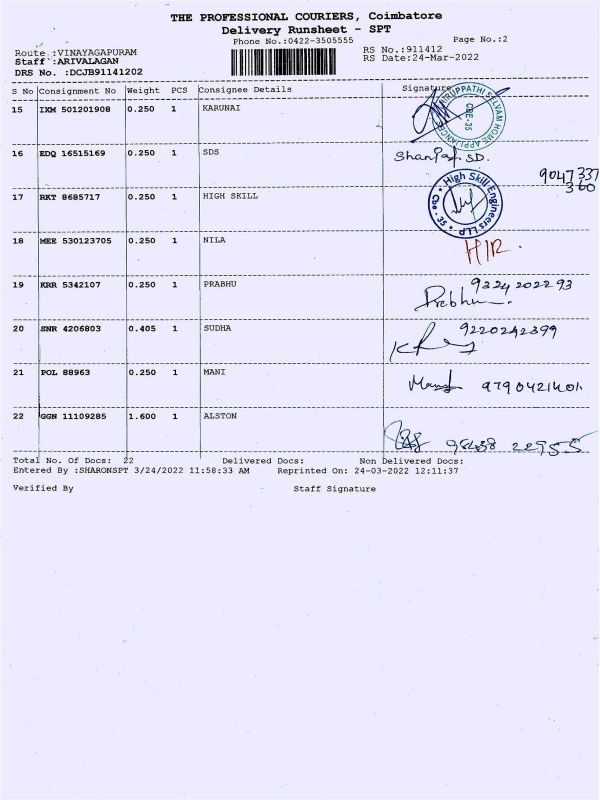 THE PROFESSIONAL COURIERS, Coimbatore
Delivery Runsheet - SPT
Phone No.:0422-3505555 Page No.:2
Route :VINAYAGAPURAM RS No.:911412
Staff :ARIVALAGAN RS Date:24-Mar-2022
DRS No. :DCJB91141202
S No Consignment No Weight PCS Consignee Details Signature
15 IXM 501201908 0.250 1 KARUNAI
CBE-35
16 EDQ 16515169 0.250 1 SDS S.D.
9047337
360
17 RKT 8685717 0.250 1 HIGH SKILL High Skill Engineers LLP Cbe - 35
18 MEE 530123705 0.250 1 NILA H/R.
19 KRR 5342107 0.250 1 PRABHU Prabhu 9324202293
20 SNR 4206803 0.405 1 SUDHA 9220242399
21 POL 88963 0.250 1 MANI
22 GGN 11109285 1.600 1 ALSTON
Total No. Of Docs: 22 Delivered Docs: Non Delivered Docs:
Entered By :SHARONSPT 3/24/2022 11:58:33 AM Reprinted On: 24-03-2022 12:11:37
Verified By Staff Signature